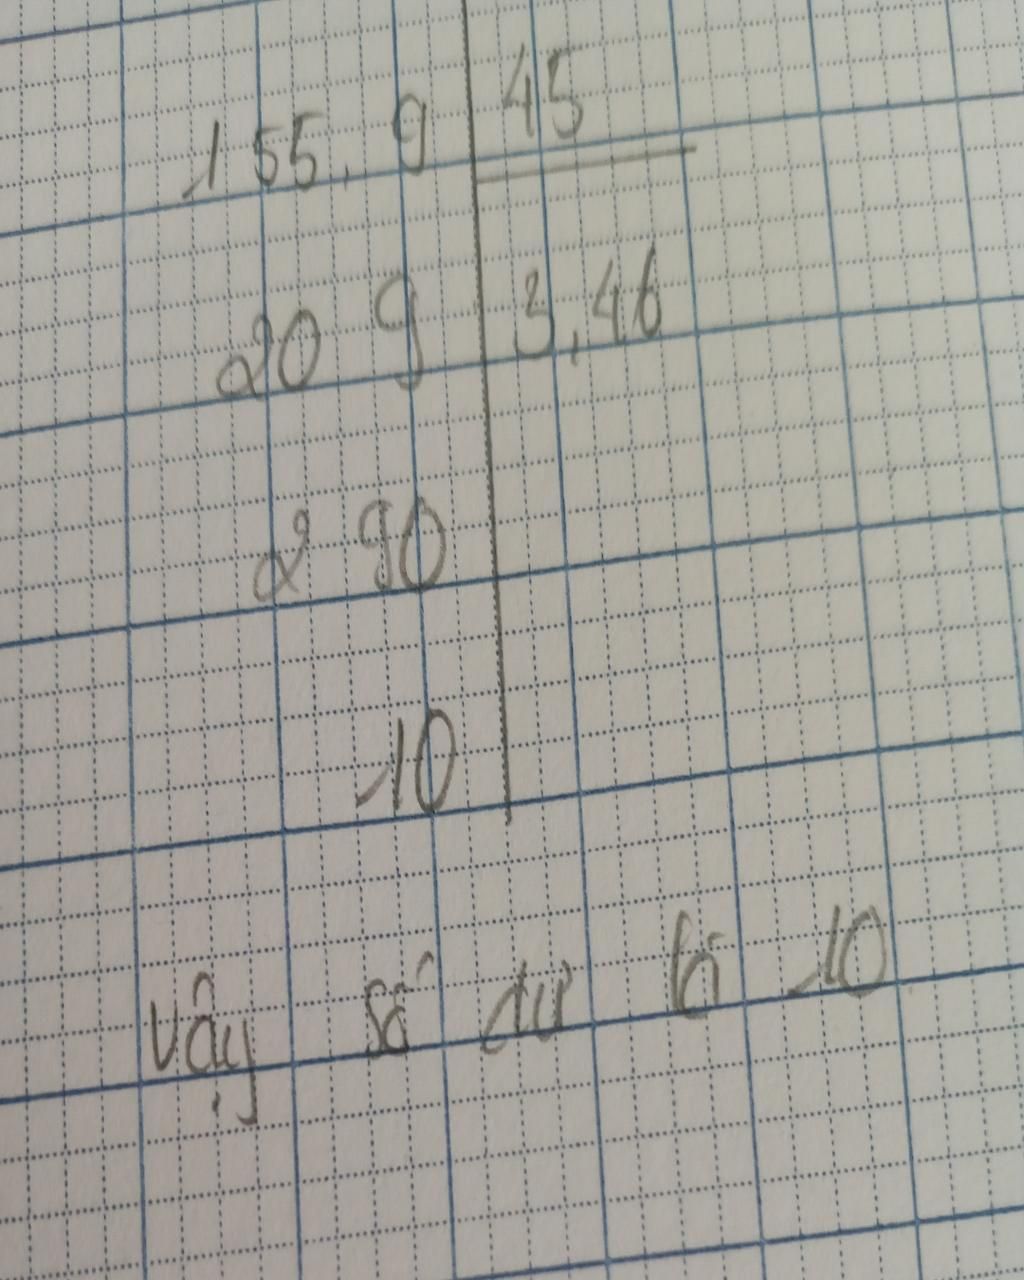 155,9 45
20 9 3,46
2 90
10
Vậy số dư là 10